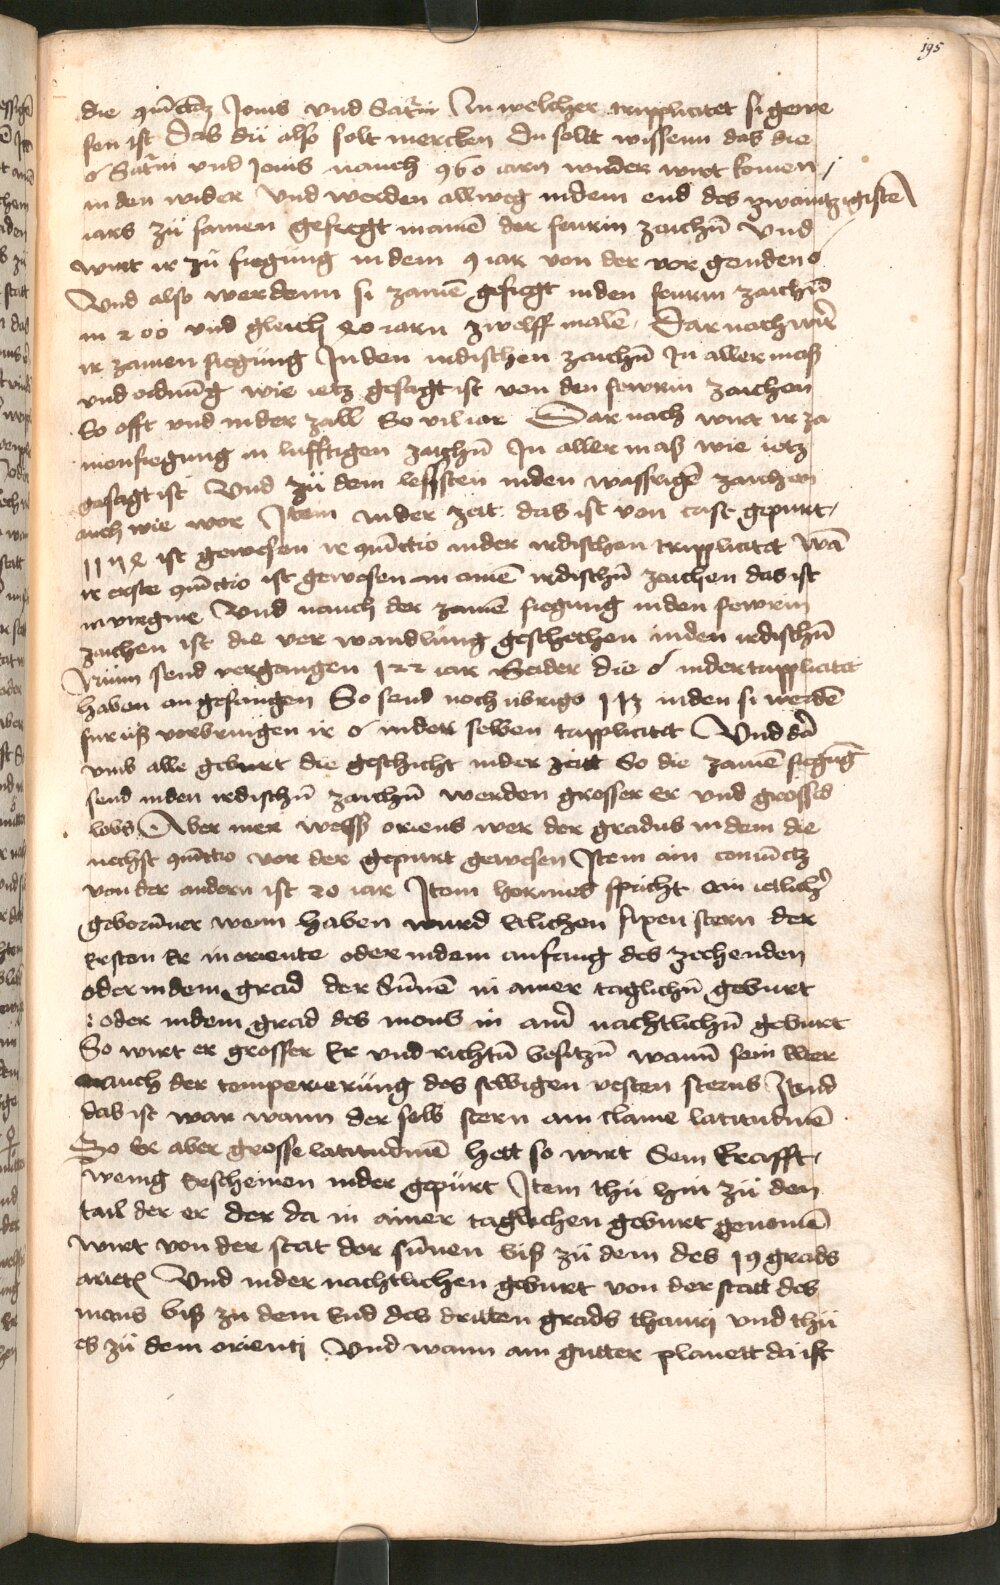 195
die 9iūctōz Jovis vnd Satrͫni An welcher tripplicitet si gewe
sen ist Das dü also solt mercken Du sollt wissenn das die
☌ Satrni vnd Jovis nauch 960 iarn wider wirt komen /
in den wider Vnd werden allweg in dem end des zwaintzigisten
iars zü samen gefiegt in ainē der feurin zaichn̄ Vnd
wirt ir zü fiegung in dem 9 iar von der vor genden ☌
Vnd also werdenn si zamē gefiegt in den feurin zaichn̄
in 200 vnd gleich 40 iarn zwelff malē. Dar nach wir̄
ir zamen fiegung In den irdischen zaichn̄ In aller mass
vnd ordnūg wie ietz gesagt ist von den fewrin zaichen
So offt vnd in der zall So vil iar Dar nach wirt ir za
menfiegung in lufftigen zaichn̄ In aller mass wie ietz
gesagt ist Vnd zü dem lessten in den wassrigē zaichen
auch wie vor Item In der zeit das ist von crist gepurt
ist gewesen ir 9iūctio in der irdischen tripplicitet Wā
ir erste 9iūctio ist gewesen in ainē irdischn̄ zaichen das ist
in virgine Vnd nauch der zamē fiegung in den fewrin
zaichen ist die ver wandlung geschechen in den irdischn̄
Nunn send vergangen 122 iar Seider die ☌ in der tripplicitet
haben an gefangen So send noch übrigs in den si werdē
für üss verbringen ir ☌ in der selben tripplicitet Vnd dar̄
vmb alle geburt die geschicht in der zeitt So die zamē fiegūg
send in den irdischn̄ zaichn̄ werden grosser er vnd grosses
lobs Aber mer weiss oriens wer der gradus in dem die
nechst 9iūctio vor der gepurt gewesen Item ain coniūctz
von der andern ist 20 iar Item hermes spricht ain ietlichr̄
geborūner wenn haben wurd Etlichen fixen stern der
ersten Er in oriente oder in dem anfang des zechenden
oder in dem grad der Sūnē in ainer taglichn̄ geburt
oder in dem grad des mons in ainr̄ nachtlichn̄ geburt
So wirt er grosser Er vnd richtū besitzn̄ wann sein wer
nauch der temperierung des selbigen vesten sterns Vnd
das ist war wann der selb stern ain claine latitudinē
So Er aber grosse latitudinē hett so wirt Sein krafft
wenig Erscheinen in der gepürt Item thü hin zü den
tail der er der da in ainer taglichen geburt genomē
wirt von der stat der sūnen biss zü dem des 19 grads
arietꝭ Vnd in der nachtlichen geburt von der statt des
mons biss zu dem End des dritten grads thauri vnd thü
es zü dem orienti Vnd wann ain gutter planett da ist